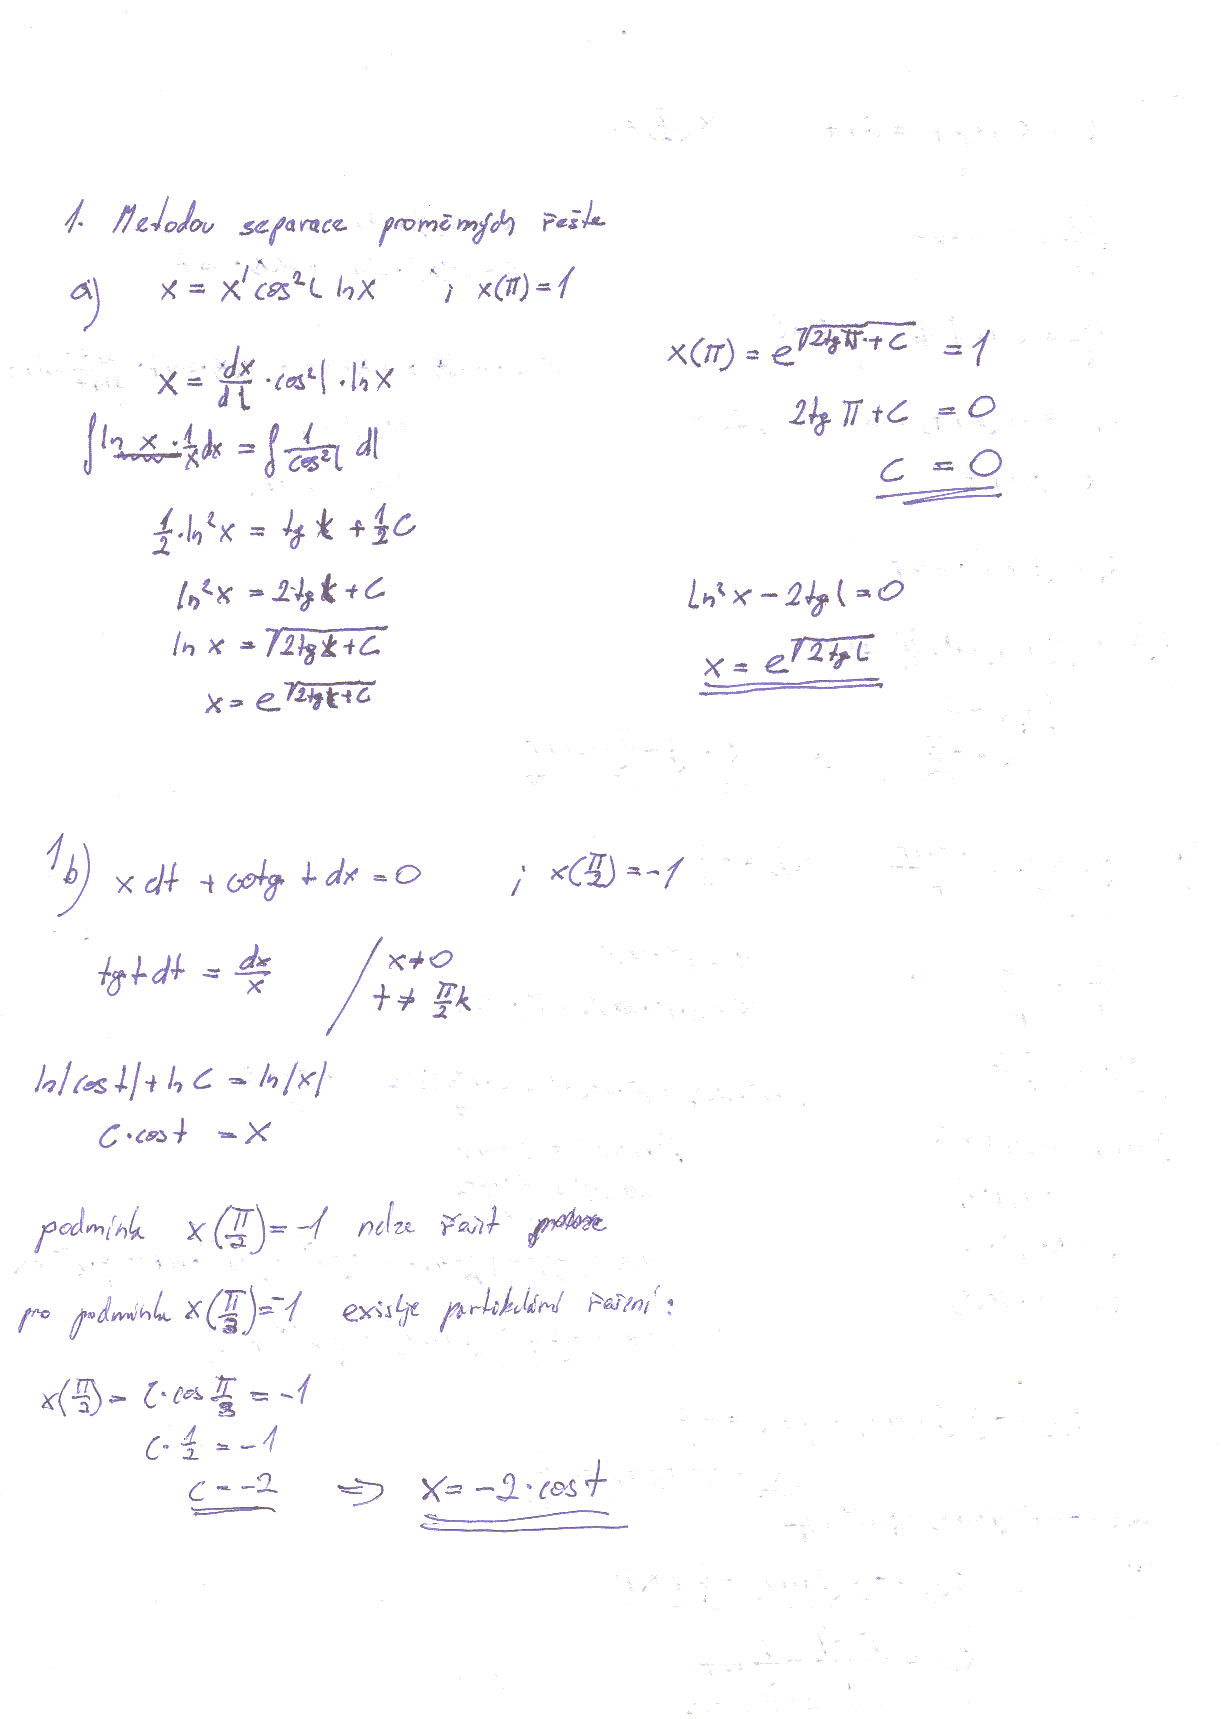 1. Metodou separace proměnných řešte
a) x = x' cos² t ln x ; x(π) = 1
x = dx/dt · cos² t · ln x
∫ ln x · 1/x dx = ∫ 1/cos² t dt
1/2 · ln² x = tg t + 1/2 C
ln² x = 2 tg t + C
ln x = √(2 tg t + C)
x = e^√(2 tg t + C)
x(π) = e^√(2 tg π + C) = 1
2 tg π + C = 0
C = 0
ln² x − 2 tg t = 0
x = e^√(2 tg t)
1b) x dt + cotg t dx = 0 ; x(π/2) = −1
tg t dt = dx/x / x ≠ 0
t ≠ π/2 k
ln|cos t| + ln C = ln|x|
C · cos t = x
podmínk x(π/2) = −1 nelze řešit protože
pro podmínku x(π/3) = −1 existuje partikulární řešení:
x(π/3) = C · cos π/3 = −1
C · 1/2 = −1
C = −2 ⇒ x = −2 · cos t